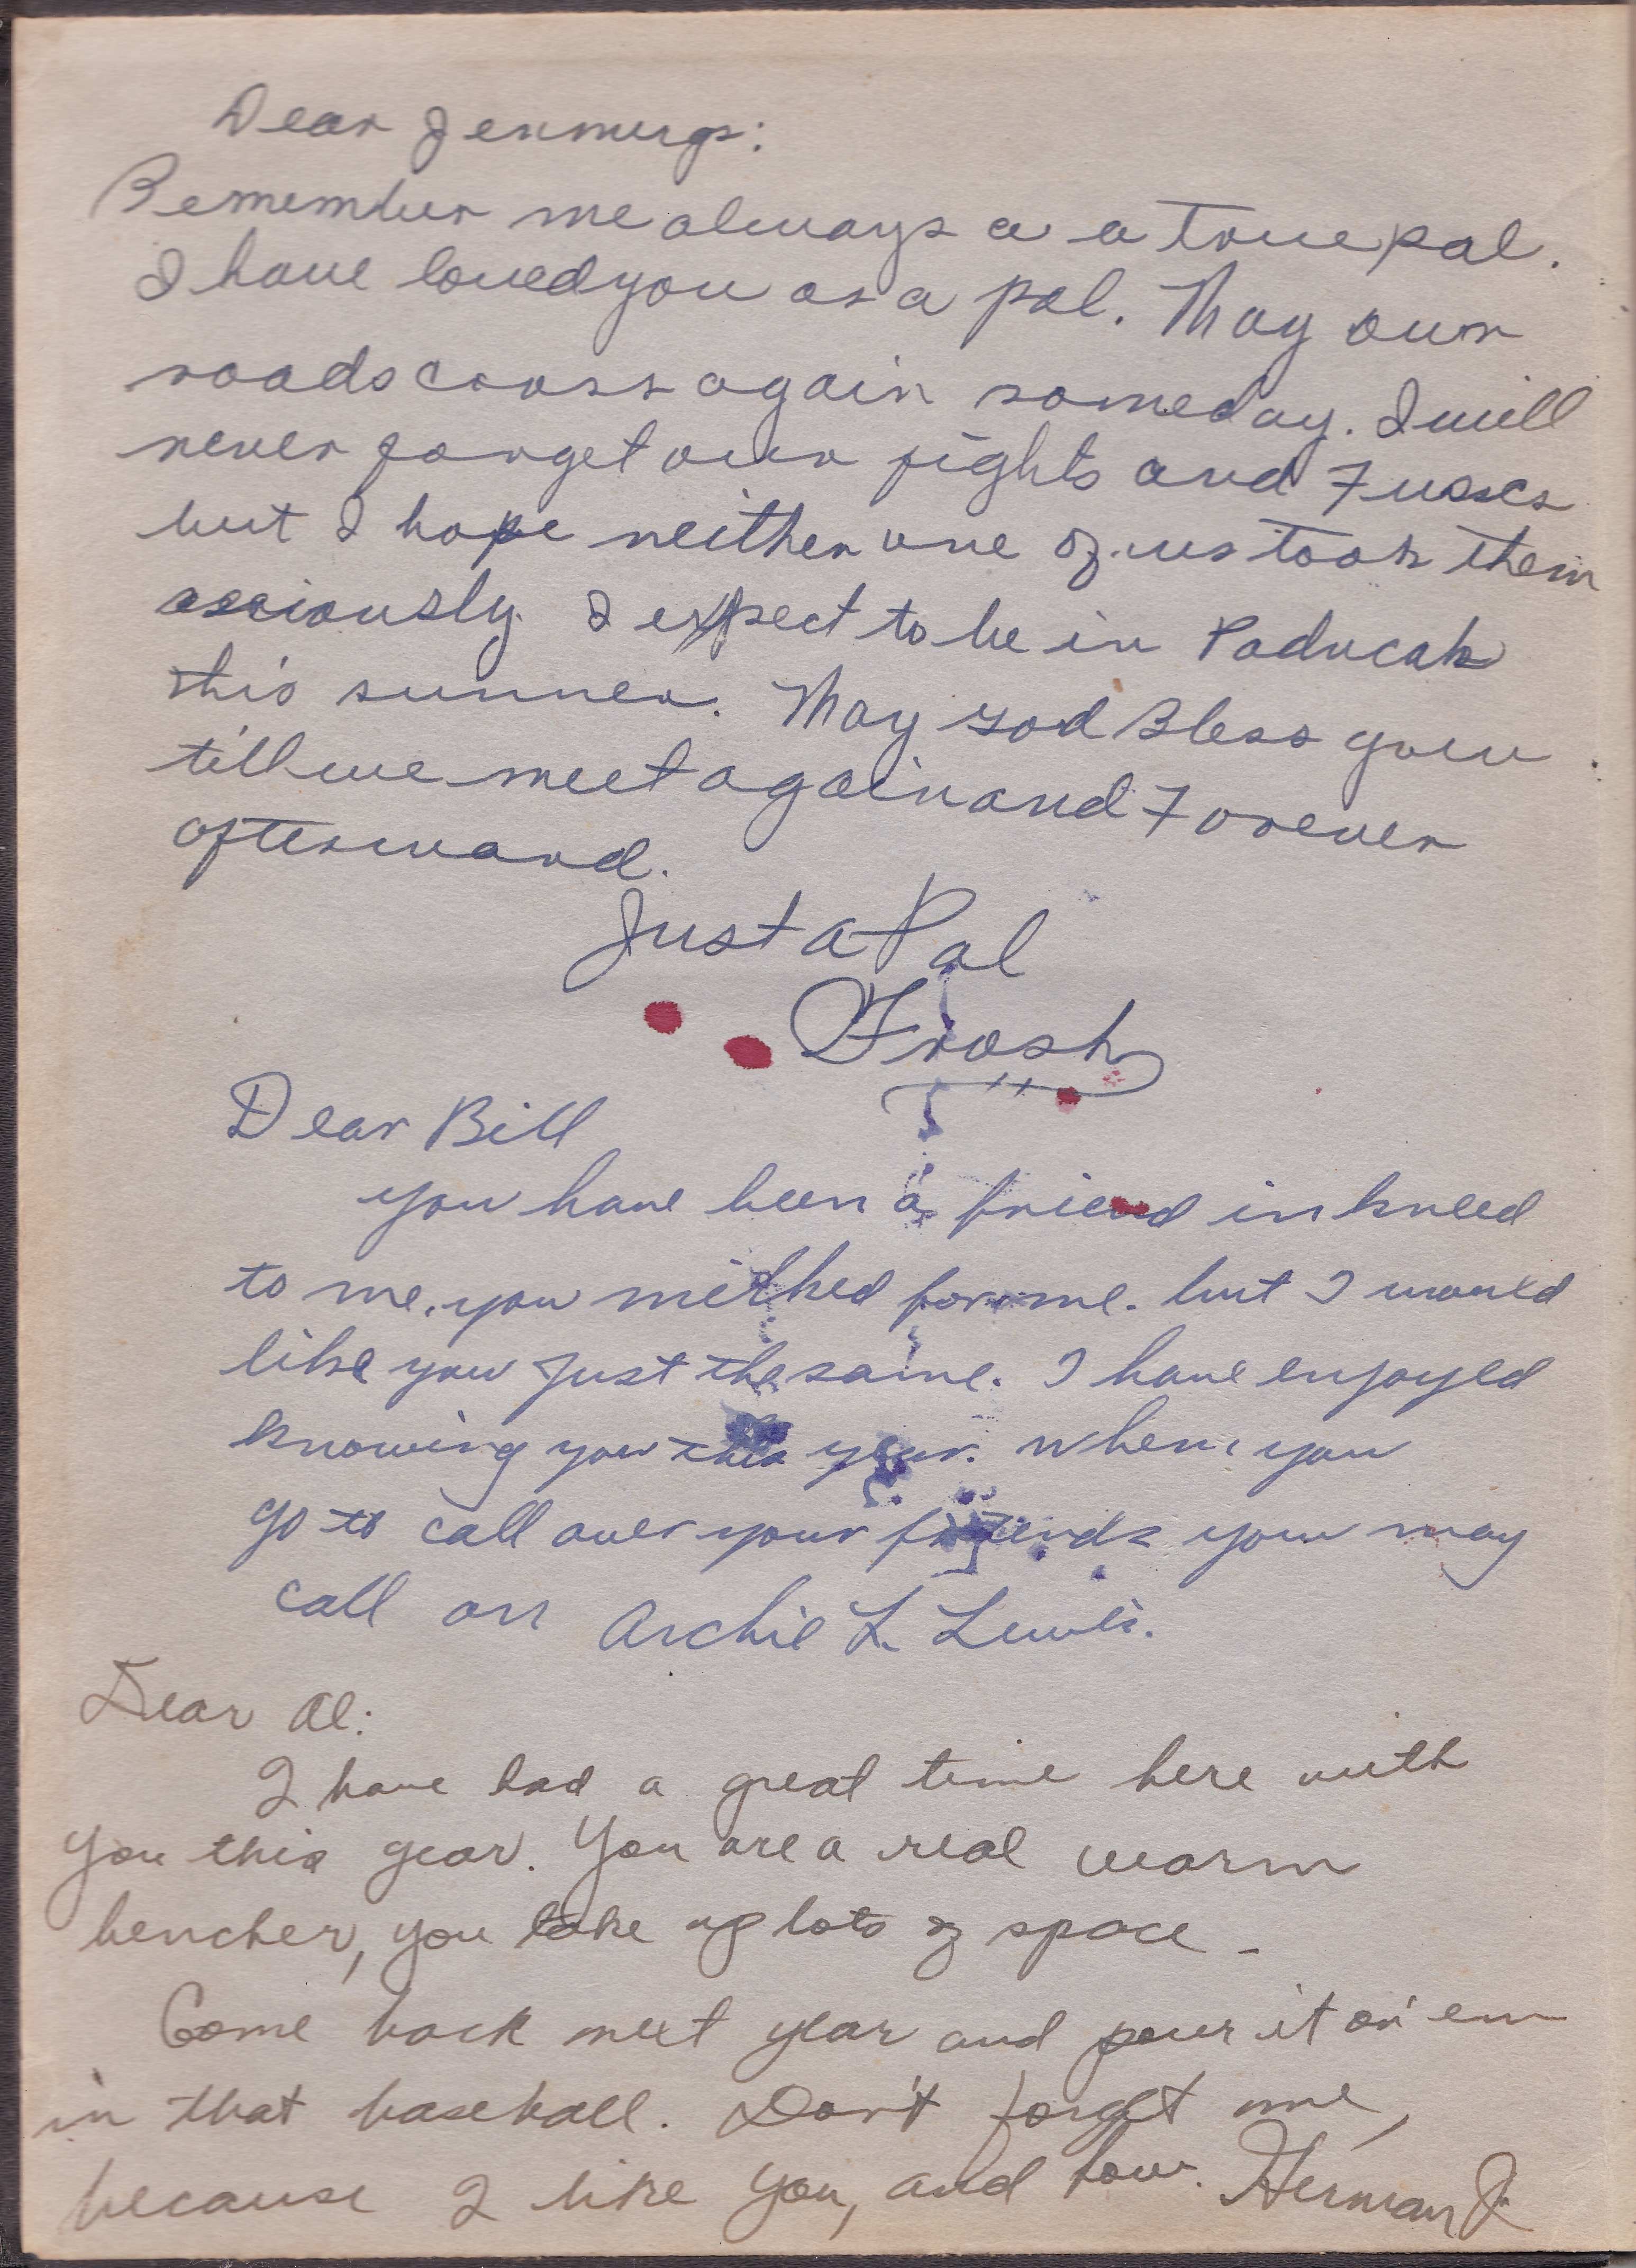 Dear Jennings:
Remember me always a a true pal.
I have loved you as a pal. May our
roads cross again someday. I will
never forget our fights and Fusses
but I hope neither one of us took them
I expect to be in Paducah
this sunner. May God Bless you
till we meet again and Forever
afterward.
Just a Pal
Frosh
Dear Bill
you have been a friend in kneed
to me. you milked for me. but I would
like you just the same. I have enjoyed
knowing you this year. when you
go to call over your friends you may
call on Archie L. Lewis.
Dear Al:
I have had a great time here with
you this year. You are a real warm
bencher, you take up lots of space -
Come back next year and pour it on 'em
in that baseball. Don't forget me,
because I like you, and how. Herman J.